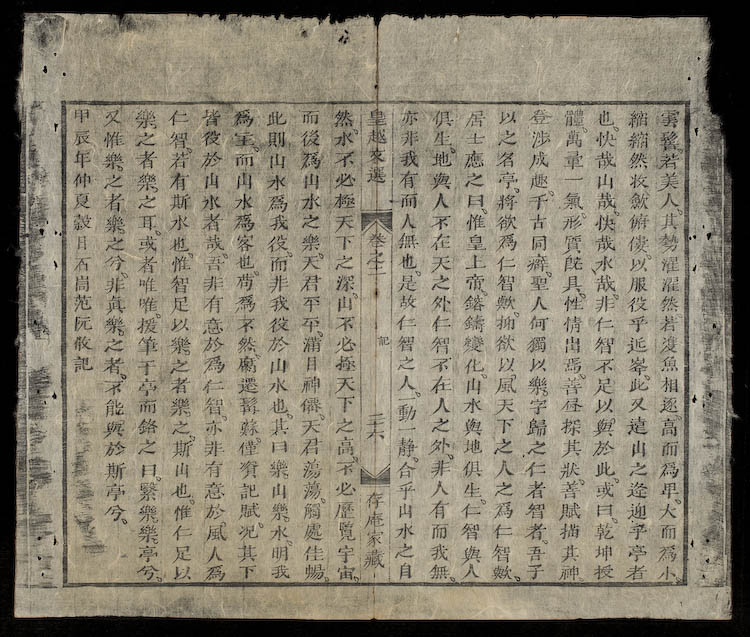 雲鬟若美人。其勢濯濯然若渡魚相逐。高而為甲。大而為小。
縮縮然妝斂俯僂以服役乎近峯。此又遠山之逢迎乎亭者
也。快哉山哉。快哉水哉。非仁智不足以與於此。或曰。乾坤授
體。萬彙一氣。形質旣具。性情出焉。善昼探其狀。善賦描其神。
登涉成趣。千古同癖。聖人何獨以樂字歸之仁者智者。吾子
以之名亭。將欲為仁智歟。抑欲以風天下之人之為仁智歟。
居士應之曰。惟皇上帝。鎔鑄變化。山水與地俱生。仁智與人
俱生。地與人不在天之外。仁智不在人之外。非人有而我無。
亦非我有而人無也。是故仁智之人。一動一静。合乎山水之自
皇越文選 卷之三 記 二十六 存庵家藏
然。水不必極天下之深。山不必極天下之高。不必歷覽宇宙。
而後為山水之樂。天君平平。滿目神僊。天君蕩蕩。觸處佳暢。
此則山水為我役。而非我役於山水也。其曰樂山樂水。明我
為主。而山水為客也。苟為不然。腐遷髯蘇。僅資記賦。况其下
皆役於山水者哉。吾非有意於為仁智。亦非有意於風人為
仁智。若有斯水也。惟智足以樂之者樂之。斯山也。惟仁足以
樂之者樂之耳。或者唯唯。援筆于亭而銘之曰。繄樂樂亭兮。
又惟樂之者樂之兮。非真樂之者。不能與於斯亭兮。
甲辰年仲夏穀日石崗范阮攸記